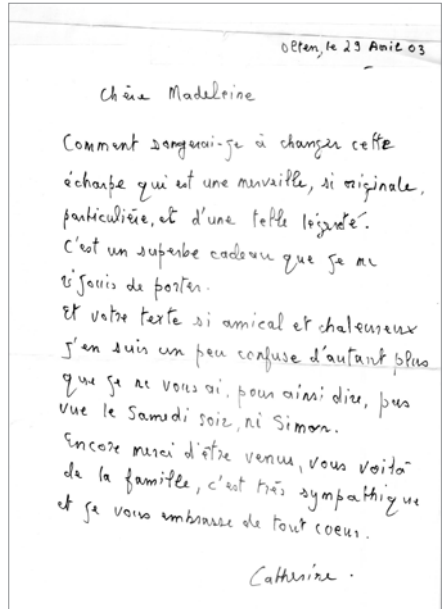 Olten, le 29 Avril 03
Chère Madeleine
Comment songerai-je à changer cette
écharpe qui est une merveille, si originale,
particulière, et d'une telle légèreté.
C'est un superbe cadeau que je me
réjouis de porter.
Et votre texte si amical et chaleureux
j'en suis un peu confuse d'autant plus
que je ne vous ai, pour ainsi dire, pas
vue le Samedi soir, ni Simon.
Encore merci d'être venus, vous voilà
de la famille, c'est très sympathique
et je vous embrasse de tout coeur.
Catherine.